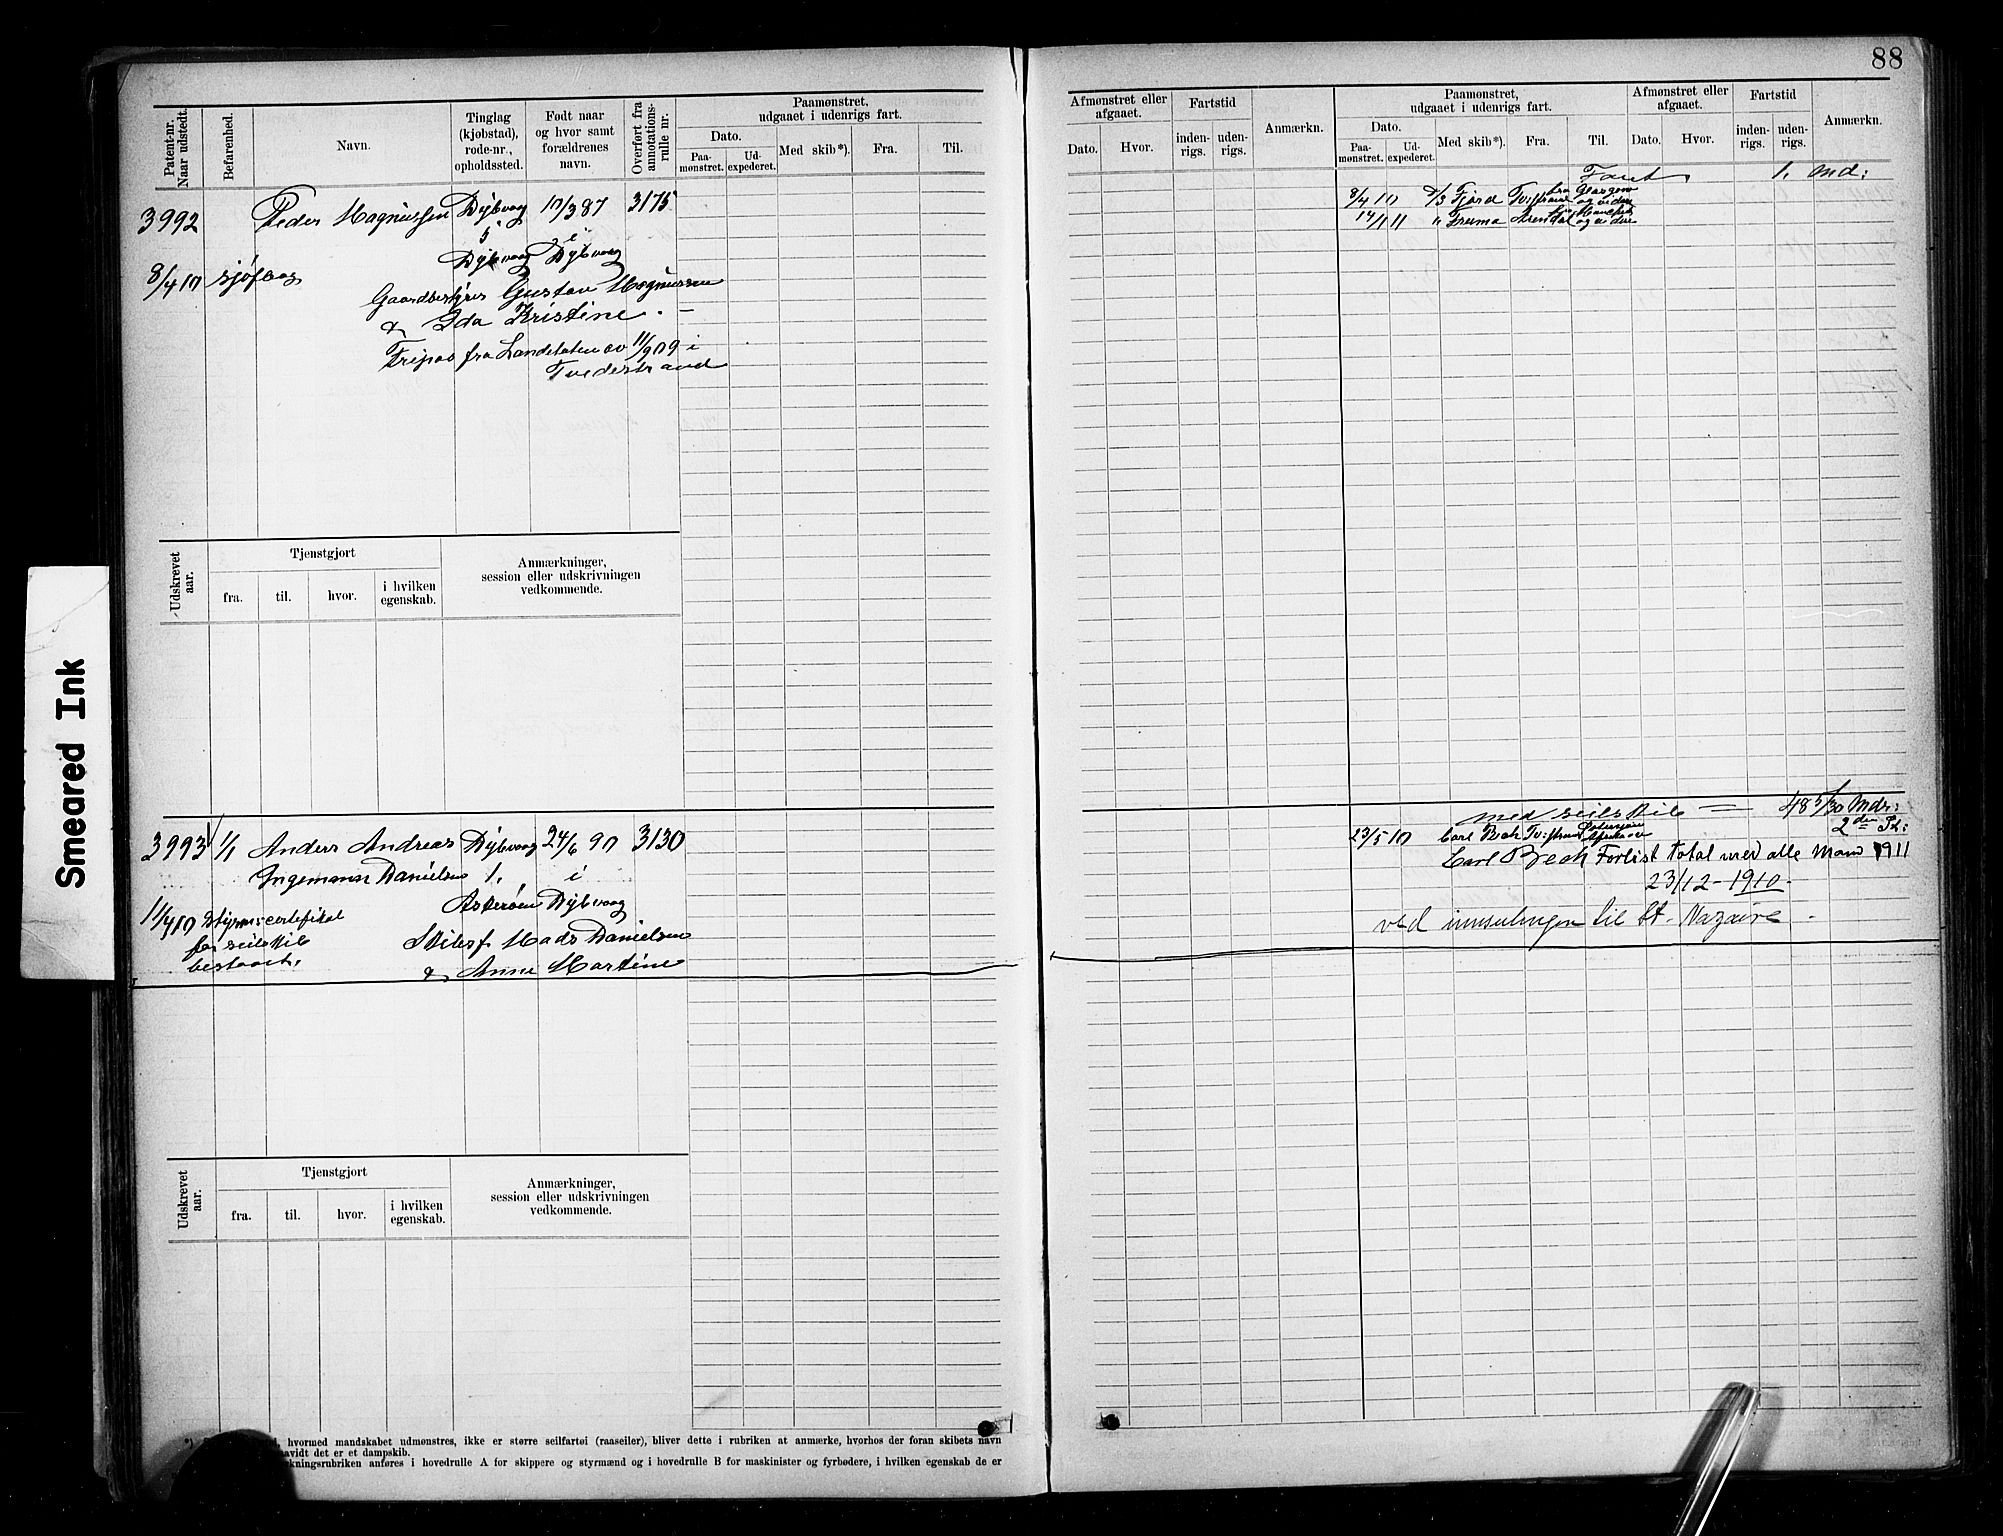 88
Patent-nr.
Naar udstedt.
Befarenhed.
Navn.
Tinglag
(kjøbstad),
rode-nr.,
opholdssted.
Født naar
og hvor samt
forældrenes
navn.
Overført fra
annotations-
rulle nr.
Paamønstret,
udgaaet i udenrigs fart.
Dato.
Paa-
mønstret.
Ud-
expederet.
Med skib*).
Fra.
Til.
3992
Peder Magnussen Dybvaag 10/3 87 3175
5 i
Dybvaag Dybvaag
8/4 10 sjøfart
Gaardbestyrer Gustav Magnussen
& Ida Kristine
Fripas fra Landetaten av 11/9 09 i
Tvedestrand
Udskrevet
aar.
Tjenstgjort
fra. til. hvor. i hvilken
egenskab.
Anmærkninger,
session eller udskrivningen
vedkommende.
3993 1/1 Anders Andreas Dybvaag 24/6 90 3130
Ingemann Danielsen 1. i
Askerøen Dybvaag
11/4 10 Styrm: certefikat
for seilskib
bestaaet.
Skibsf. Mads Danielsen
& Anne Martine
Udskrevet
aar.
Tjenstgjort
fra. til. hvor. i hvilken
egenskab.
Anmærkninger,
session eller udskrivningen
vedkommende.
hvormed mandskabet udmønstres, ikke er større seilfartøi (raaseiler), bliver dette i rubriken at anmærke, hvorhos der foran skibets navn
avidt det er et dampskib.
kningsrubriken anføres i hovedrulle A for skippere og styrmænd og i hovedrulle B for maskinister og fyrbødere, i hvilken egenskab de er
Afmønstret eller
afgaaet.
Dato. Hvor.
Fartstid
inden-
rigs.
uden-
rigs.
Anmærkn.
Paamønstret,
udgaaet i udenrigs fart.
Dato.
Paa-
mønstret.
Ud-
expederet.
Med skib*). Fra. Til.
Afmønstret eller
afgaaet.
Dato. Hvor.
Fartstid
inden-
rigs.
uden-
rigs.
Anmærkn.
Faret 1. Md:
8/4 10 Fjord Glasgow
og videre
14/1 11 " Arendal
og videre
med seilskib = 48 5/30 Mdr:
23/5 10 Carl Bech 2den
Carl Bech Forlist total med alle Mand 1911
23/12 - 1910 -
ved innseilingen til St. Nazaire -
Smeared Ink